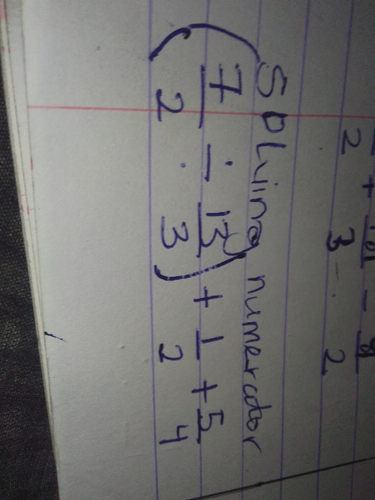 2 + 3 - 2
Solving numerator
(7/2 ÷ 13/3) + 1/2 + 5/4